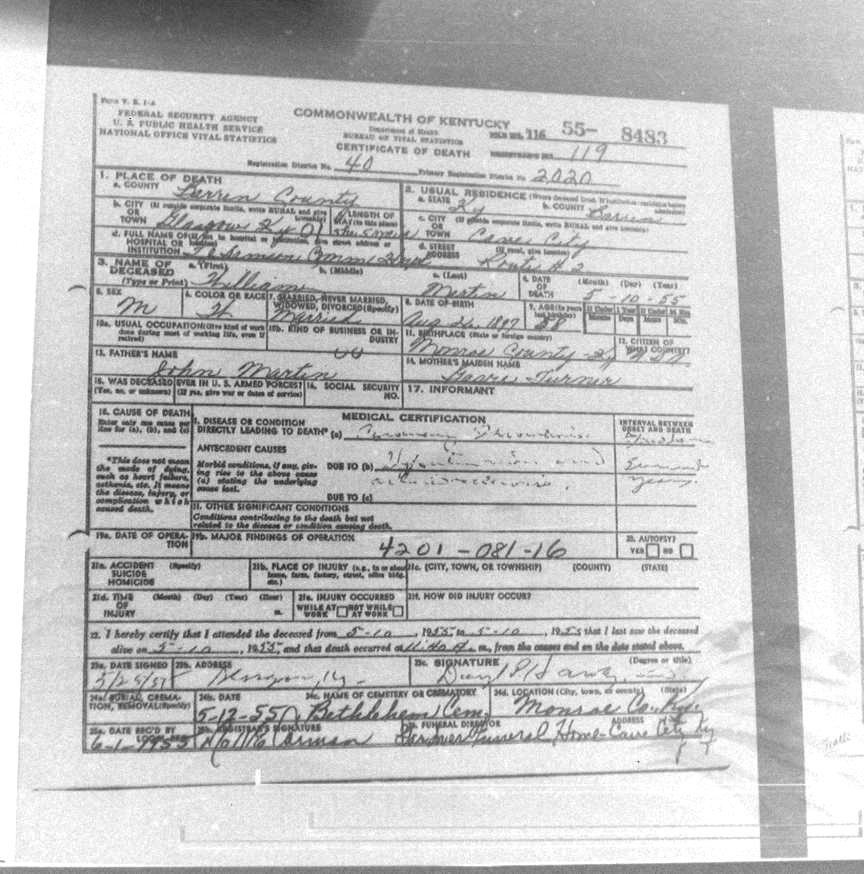 Form V. S. 1-A
FEDERAL SECURITY AGENCY
U. S. PUBLIC HEALTH SERVICE
NATIONAL OFFICE VITAL STATISTICS
COMMONWEALTH OF KENTUCKY
Department of Health
BUREAU OF VITAL STATISTICS
CERTIFICATE OF DEATH
FILE NO. 116 55- 8483
REGISTRAR'S NO. 119
Registration District No. 40 Primary Registration District No. 2020
1. PLACE OF DEATH
a. COUNTY Barren County
2. USUAL RESIDENCE (Where deceased lived. If institution: residence before admission)
a. STATE Ky b. COUNTY Barren
b. CITY (If outside corporate limits, write RURAL and give township)
OR
TOWN Glasgow Ky
c. LENGTH OF STAY (in this place)
c. CITY (If outside corporate limits, write RURAL and give township)
OR
TOWN Cave City
d. FULL NAME OF (If not in hospital or institution, give street address or location)
HOSPITAL OR
INSTITUTION T. J. Samson Comm Hosp
d. STREET (If rural, give location)
ADDRESS Route # 2
3. NAME OF DECEASED
(Type or Print)
a. (First) b. (Middle) c. (Last)
William Martin
4. DATE OF DEATH (Month) (Day) (Year)
5-10-55
5. SEX
M
6. COLOR OR RACE
W
7. MARRIED, NEVER MARRIED, WIDOWED, DIVORCED (Specify)
Married
8. DATE OF BIRTH
Aug 26, 1897
9. AGE (In years last birthday)
58
If Under 1 Year If Under 24 Hrs.
Months Days Hours Min.
10a. USUAL OCCUPATION (Give kind of work done during most of working life, even if retired)
10b. KIND OF BUSINESS OR INDUSTRY
11. BIRTHPLACE (State or foreign country)
Monroe County - Ky
12. CITIZEN OF WHAT COUNTRY?
USA
13. FATHER'S NAME
John Martin
14. MOTHER'S MAIDEN NAME
Turner
15. WAS DECEASED EVER IN U. S. ARMED FORCES?
(Yes, no, or unknown) (If yes, give war or dates of service)
16. SOCIAL SECURITY NO.
17. INFORMANT
18. CAUSE OF DEATH
Enter only one cause per line for (a), (b), and (c)
*This does not mean the mode of dying, such as heart failure, asthenia, etc. It means the disease, injury, or complication which caused death.
MEDICAL CERTIFICATION
I. DISEASE OR CONDITION
DIRECTLY LEADING TO DEATH* (a) Coronary Thrombosis
INTERVAL BETWEEN ONSET AND DEATH
ANTECEDENT CAUSES
Morbid conditions, if any, giving rise to the above cause (a) stating the underlying cause last.
DUE TO (b) Hypertension and
arteriosclerosis
years
DUE TO (c)
II. OTHER SIGNIFICANT CONDITIONS
Conditions contributing to the death but not related to the disease or condition causing death.
19a. DATE OF OPERATION
19b. MAJOR FINDINGS OF OPERATION
4201-081-16
20. AUTOPSY?
YES NO
21a. ACCIDENT (Specify)
SUICIDE
HOMICIDE
21b. PLACE OF INJURY (e.g., in or about home, farm, factory, street, office bldg. etc.)
21c. (CITY, TOWN, OR TOWNSHIP) (COUNTY) (STATE)
21d. TIME OF INJURY (Month) (Day) (Year) (Hour) m.
21e. INJURY OCCURRED
WHILE AT WORK NOT WHILE AT WORK
21f. HOW DID INJURY OCCUR?
22. I hereby certify that I attended the deceased from 5-10, 1955 to 5-10, 1955 that I last saw the deceased
alive on 5-10, 1955, and that death occurred at m., from the causes and on the date stated above.
23a. DATE SIGNED
23b. ADDRESS
Glasgow, Ky.
23c. SIGNATURE (Degree or title)
24a. BURIAL, CREMATION, REMOVAL (Specify)
24b. DATE
5-12-55
24c. NAME OF CEMETERY OR CREMATORY
Bethlehem Cem.
24d. LOCATION (City, town, or county) (State)
Monroe Co. Ky.
25a. DATE REC'D BY LOCAL REG.
6-1-1955
25b. REGISTRAR'S SIGNATURE
26. FUNERAL DIRECTOR ADDRESS
Funeral Home - Cave City Ky